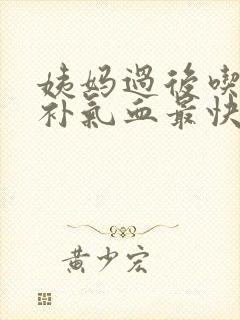 姨妈過後喫
补氣血最快
黄少宏